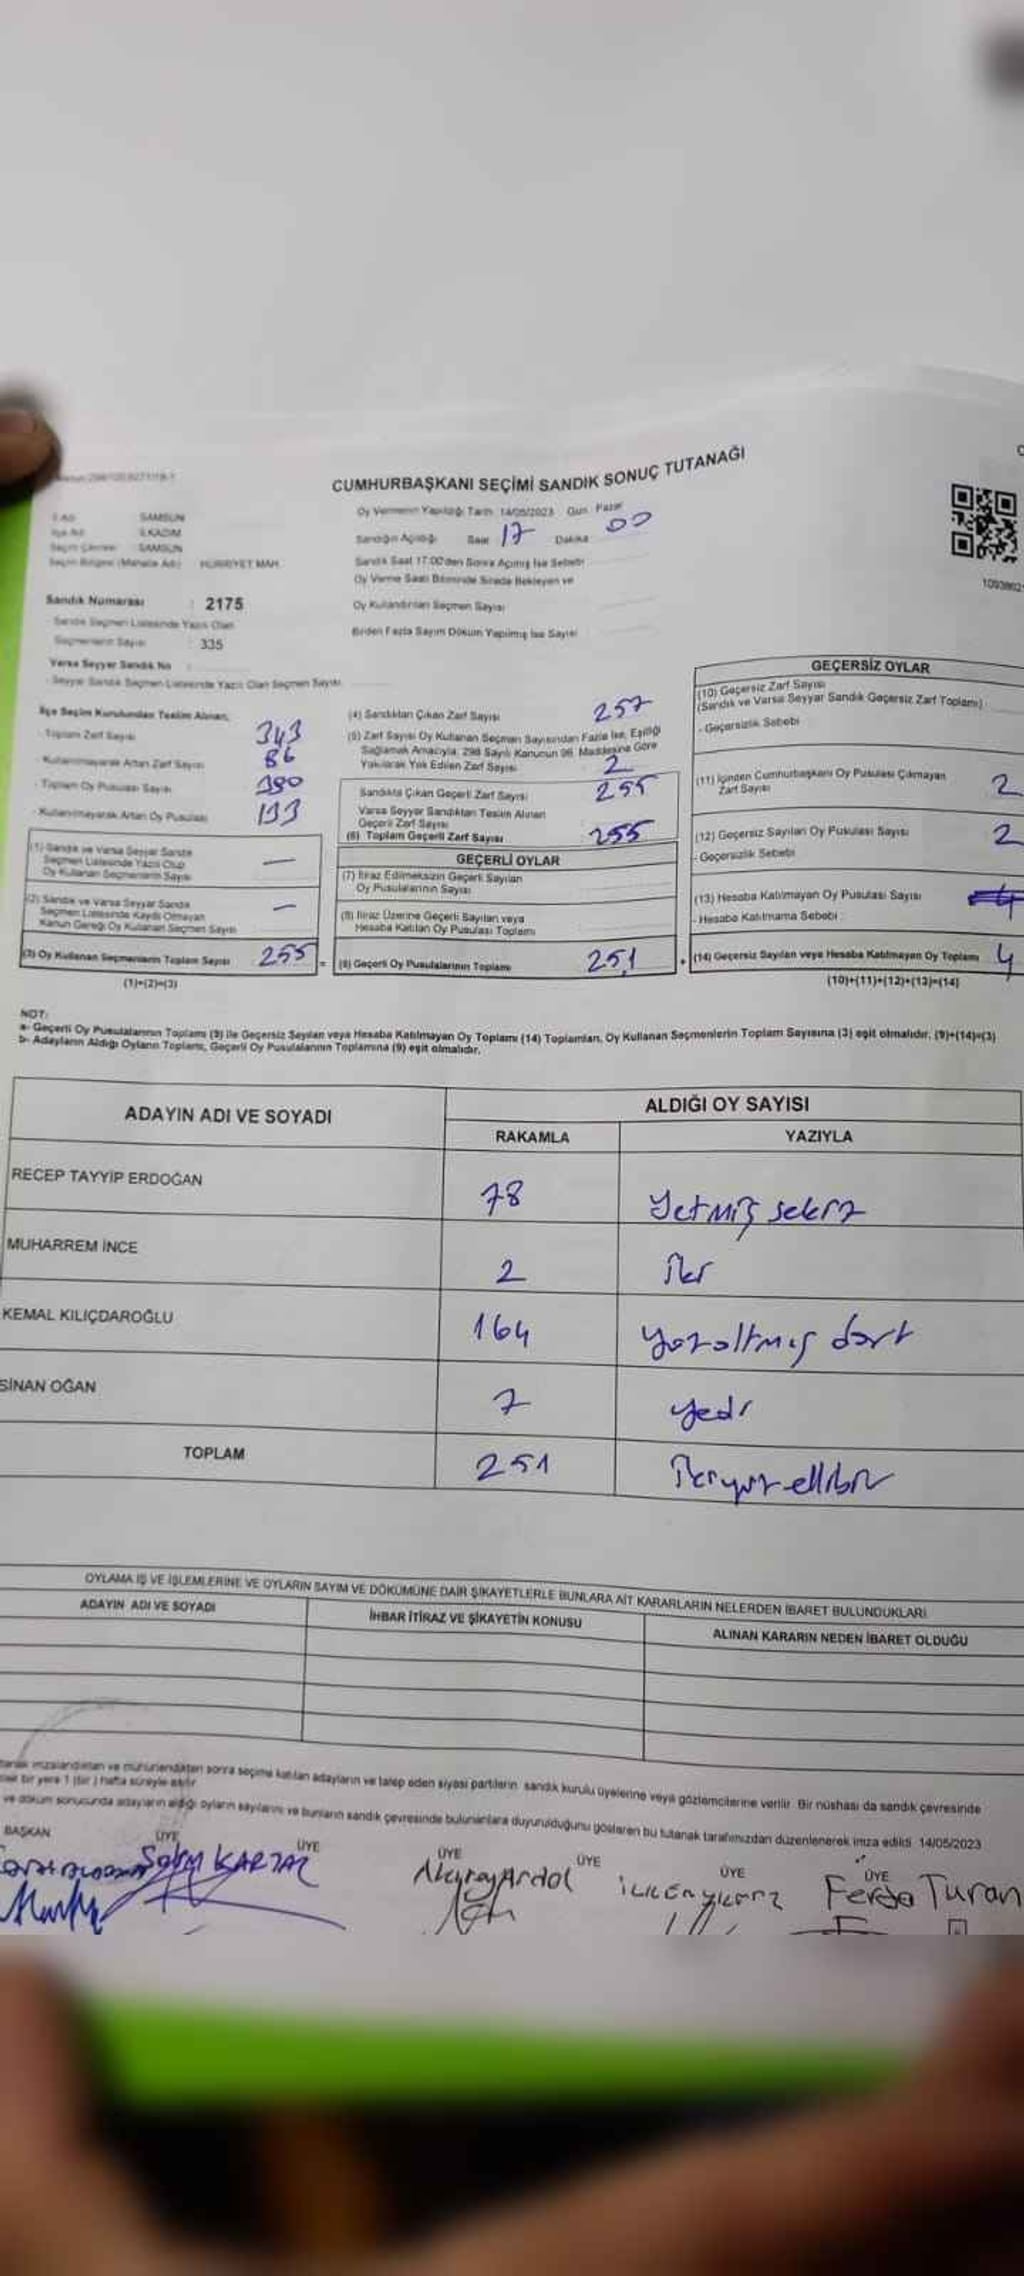 CUMHURBAŞKANI SEÇİMİ SANDIK SONUÇ TUTANAĞI
SAMSUN
İLKADIM
Seçim Çevresi SAMSUN
Seçim Bölgesi (Mahalle Adı) HÜRRİYET MAH.
Sandık Numarası : 2175
Sandık Seçmen Listesinde Yazılı Olan
Seçmenlerin Sayısı : 335
Varsa Seyyar Sandık No :
Seyyar Sandık Seçmen Listesinde Yazılı Olan Seçmen Sayısı
Oy Vermenin Yapıldığı Tarih 14/05/2023 Gün Pazar
Sandığın Açıldığı Saat 17 Dakika 00
Sandık Saat 17:00'den Sonra Açılmış İse Sebebi
Oy Verme Saati Bitiminde Sırada Bekleyen ve
Oy Kullandırılan Seçmen Sayısı
Birden Fazla Sayım Döküm Yapılmış İse Sayısı
İlçe Seçim Kurulundan Teslim Alınan;
Toplam Zarf Sayısı 343
Kullanılmayarak Artan Zarf Sayısı 86
Toplam Oy Pusulası Sayısı 390
Kullanılmayarak Artan Oy Pusulası 133
(1) Sandık ve Varsa Seyyar Sandık
Seçmen Listesinde Yazılı Olup
Oy Kullanan Seçmenlerin Sayısı —
(2) Sandık ve Varsa Seyyar Sandık
Seçmen Listesinde Kaydı Olmayan
Kanun Gereği Oy Kullanan Seçmen Sayısı —
(3) Oy Kullanan Seçmenlerin Toplam Sayısı 255
(1)+(2)=(3)
(4) Sandıktan Çıkan Zarf Sayısı 257
(5) Zarf Sayısı Oy Kullanan Seçmen Sayısından Fazla İse, Eşitliği
Sağlamak Amacıyla, 298 Sayılı Kanunun 98. Maddesine Göre
Yakılarak Yok Edilen Zarf Sayısı 2
Sandıkta Çıkan Geçerli Zarf Sayısı 255
Varsa Seyyar Sandıktan Teslim Alınan
Geçerli Zarf Sayısı
(6) Toplam Geçerli Zarf Sayısı 255
GEÇERLİ OYLAR
(7) İtiraz Edilmeksizin Geçerli Sayılan
Oy Pusulalarının Sayısı
(8) İtiraz Üzerine Geçerli Sayılan veya
Hesaba Katılan Oy Pusulası Toplamı
(9) Geçerli Oy Pusulalarının Toplamı 251
GEÇERSİZ OYLAR
(10) Geçersiz Zarf Sayısı
(Sandık ve Varsa Seyyar Sandık Geçersiz Zarf Toplamı)
- Geçersizlik Sebebi
(11) İçinden Cumhurbaşkanı Oy Pusulası Çıkmayan
Zarf Sayısı 2
(12) Geçersiz Sayılan Oy Pusulası Sayısı 2
- Geçersizlik Sebebi
(13) Hesaba Katılmayan Oy Pusulası Sayısı
- Hesaba Katılmama Sebebi :
(14) Geçersiz Sayılan veya Hesaba Katılmayan Oy Toplamı 4
(10)+(11)+(12)+(13)=(14)
NOT:
a- Geçerli Oy Pusulalarının Toplamı (9) ile Geçersiz Sayılan veya Hesaba Katılmayan Oy Toplamı (14) Toplamları, Oy Kullanan Seçmenlerin Toplam Sayısına (3) eşit olmalıdır. (9)+(14)=(3)
b- Adayların Aldığı Oyların Toplamı, Geçerli Oy Pusulalarının Toplamına (9) eşit olmalıdır.
ADAYIN ADI VE SOYADI ALDIĞI OY SAYISI
RAKAMLA YAZIYLA
RECEP TAYYİP ERDOĞAN 78 Yetmiş sekiz
MUHARREM İNCE 2 İki
KEMAL KILIÇDAROĞLU 164 Yüzaltmış dört
SİNAN OĞAN 7 yedi
TOPLAM 251 İkiyüz ellibir
OYLAMA İŞ VE İŞLEMLERİNE VE OYLARIN SAYIM VE DÖKÜMÜNE DAİR ŞİKAYETLERLE BUNLARA AİT KARARLARIN NELERDEN İBARET BULUNDUKLARI
ADAYIN ADI VE SOYADI İHBAR İTİRAZ VE ŞİKAYETİN KONUSU ALINAN KARARIN NEDEN İBARET OLDUĞU
imzalandıktan ve mühürlendikten sonra seçime katılan adayların ve talep eden siyasi partilerin sandık kurulu üyelerine veya gözlemcilerine verilir. Bir nüshası da sandık çevresinde
bir yere 1 (bir) hafta süreyle asılır
ve döküm sonucunda adayların aldığı oyların sayılarını ve bunların sandık çevresinde bulunanlara duyurulduğunu gösteren bu tutanak tarafımızdan düzenlenerek imza edildi. 14/05/2023
BAŞKAN ÜYE ÜYE ÜYE ÜYE ÜYE ÜYE
Ferda Turan